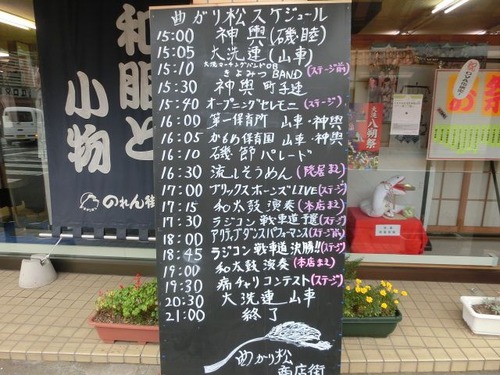 曲がり松スケジュール
15:00 神輿(磯睦)
15:05 大洗連(山車)
大洗マーチングバンドOB
15:10 きよみつBAND (ステージ前)
15:30 神輿 町子連
15:40 オープニングセレモニ (ステージ)
16:00 第一保育所 山車・神輿
16:05 かもめ保育園 山車・神輿
16:10 磯節パレード
16:30 流しそうめん (院居まえ)
17:00 ブリックスホーンズLIVE (ステージ)
17:15 和太鼓演奏 (本店まえ)
17:30 ラジコン戦車道予選 (ステージ)
18:00 アクティブダンスパフォーマンス (ステージ前)
18:45 ラジコン戦車道決勝!! (ステージ)
19:00 和太鼓演奏 (本店まえ)
19:30 痛チャリコンテスト (ステージ)
20:30 大洗連 山車
21:00 終了
曲がり松
商店街
和服と
小物
のれん街
大洗
八朔祭